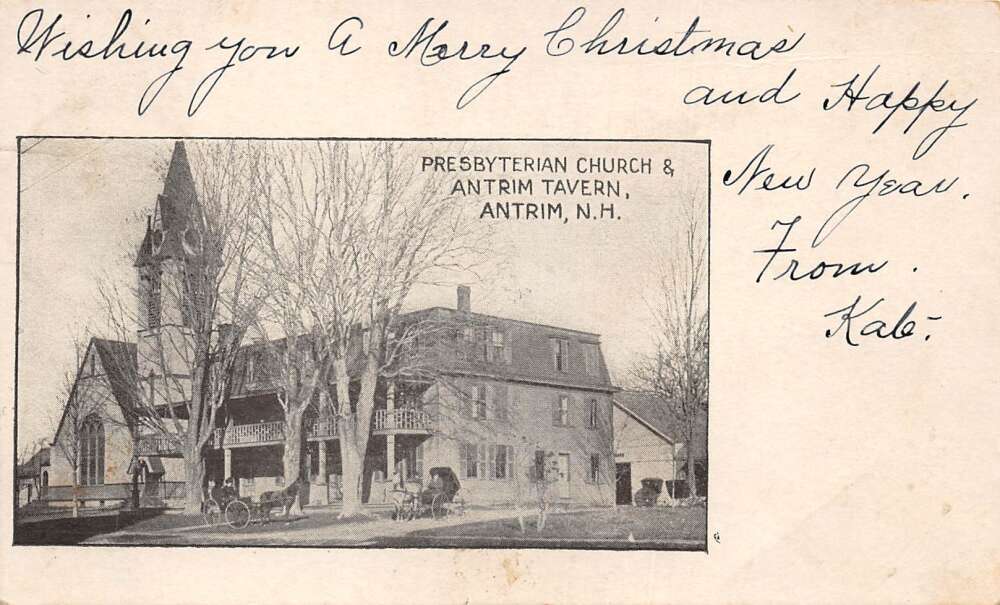 Wishing you A Merry Christmas
and Happy
New Year.
From.
Kate.
PRESBYTERIAN CHURCH &
ANTRIM TAVERN,
ANTRIM, N.H.